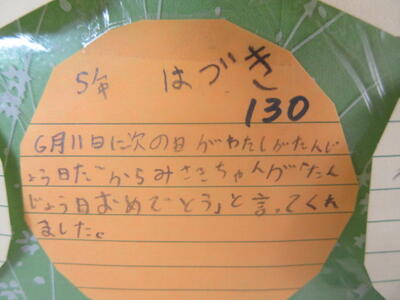 5年 はづき
130
6月11日に次の日がわたしがたんじ
ょう日だからみさきちゃんが「たん
じょう日おめでとう」と言ってくれ
ました。